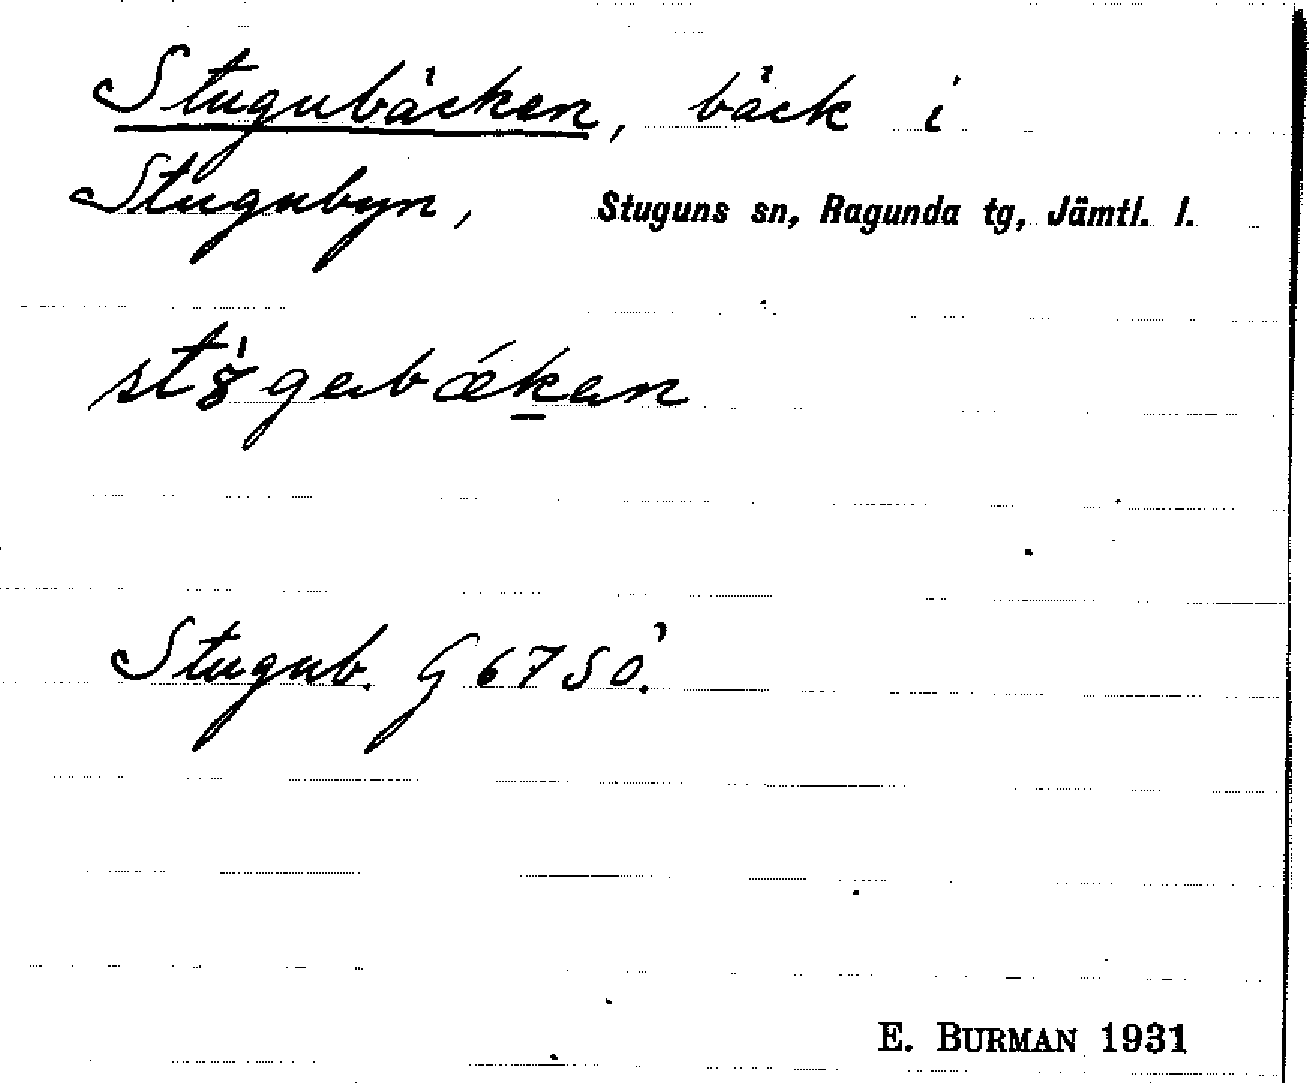 Stugubäcken, bäck i
Stugubyn, Stuguns sn, Ragunda tg, Jämtl. l.
Stugub. G 67 SÖ.
E. BURMAN 1931